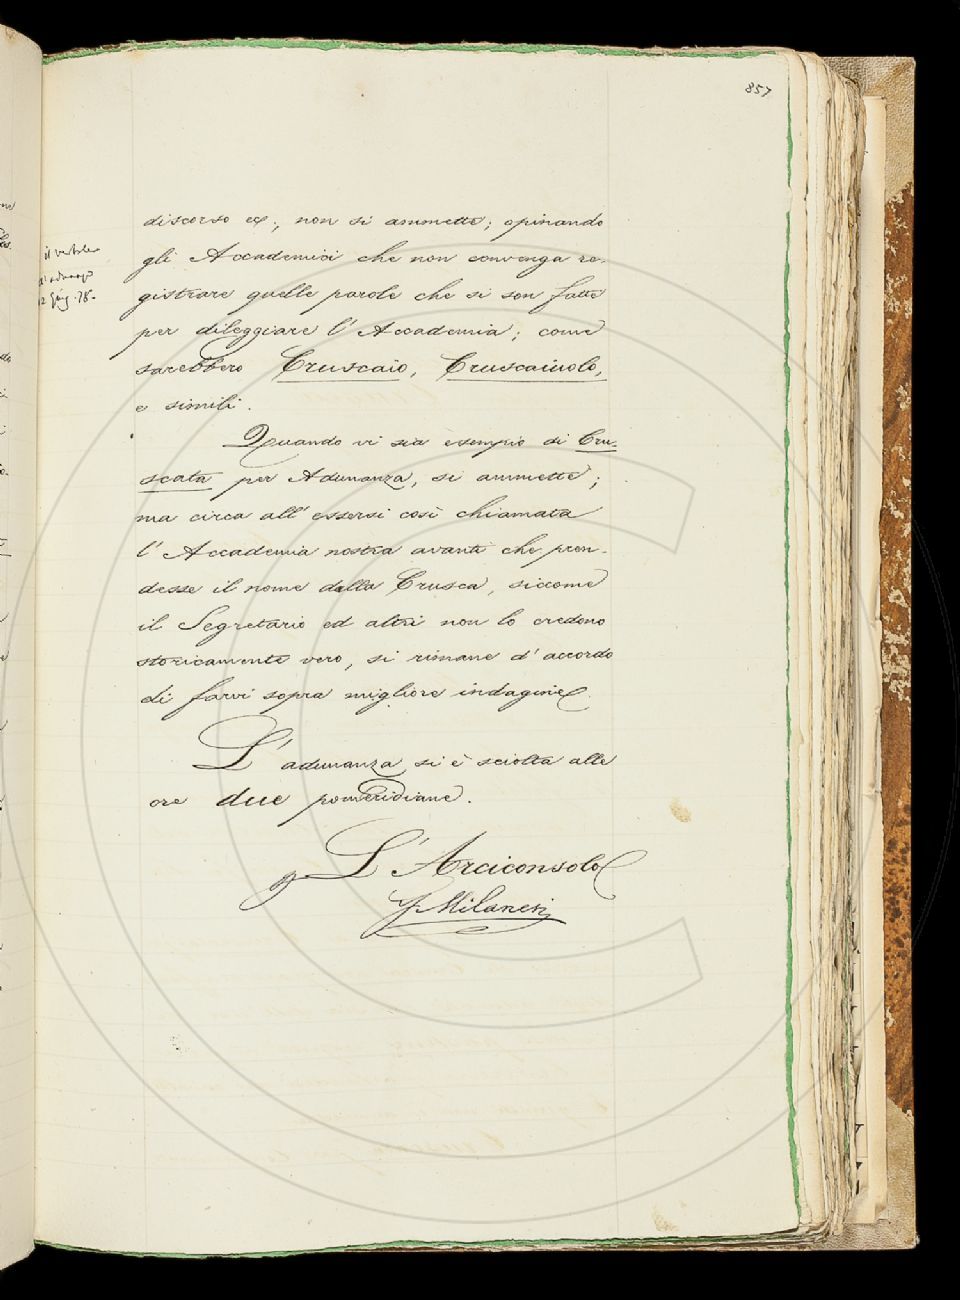 857
discorso ec; non si ammette; opinando
gli Accademici che non convenga re-
gistrare quelle parole che si son fatte
per dileggiare l'Accademia; come
sarebbero Cruscaio, Cruscaiuolo,
e simili.
Quando vi sia esempio di Cru-
scata per Adunanza, si ammette;
ma circa all'essersi così chiamata
l'Accademia nostra avanti che pren-
desse il nome dalla Crusca, siccome
il Segretario ed altri non lo credono
storicamente vero, si rimane d'accordo
di farvi sopra migliore indagine.
L'adunanza si è sciolta alle
ore due pomeridiane.
L'Arciconsolo
Milanesi